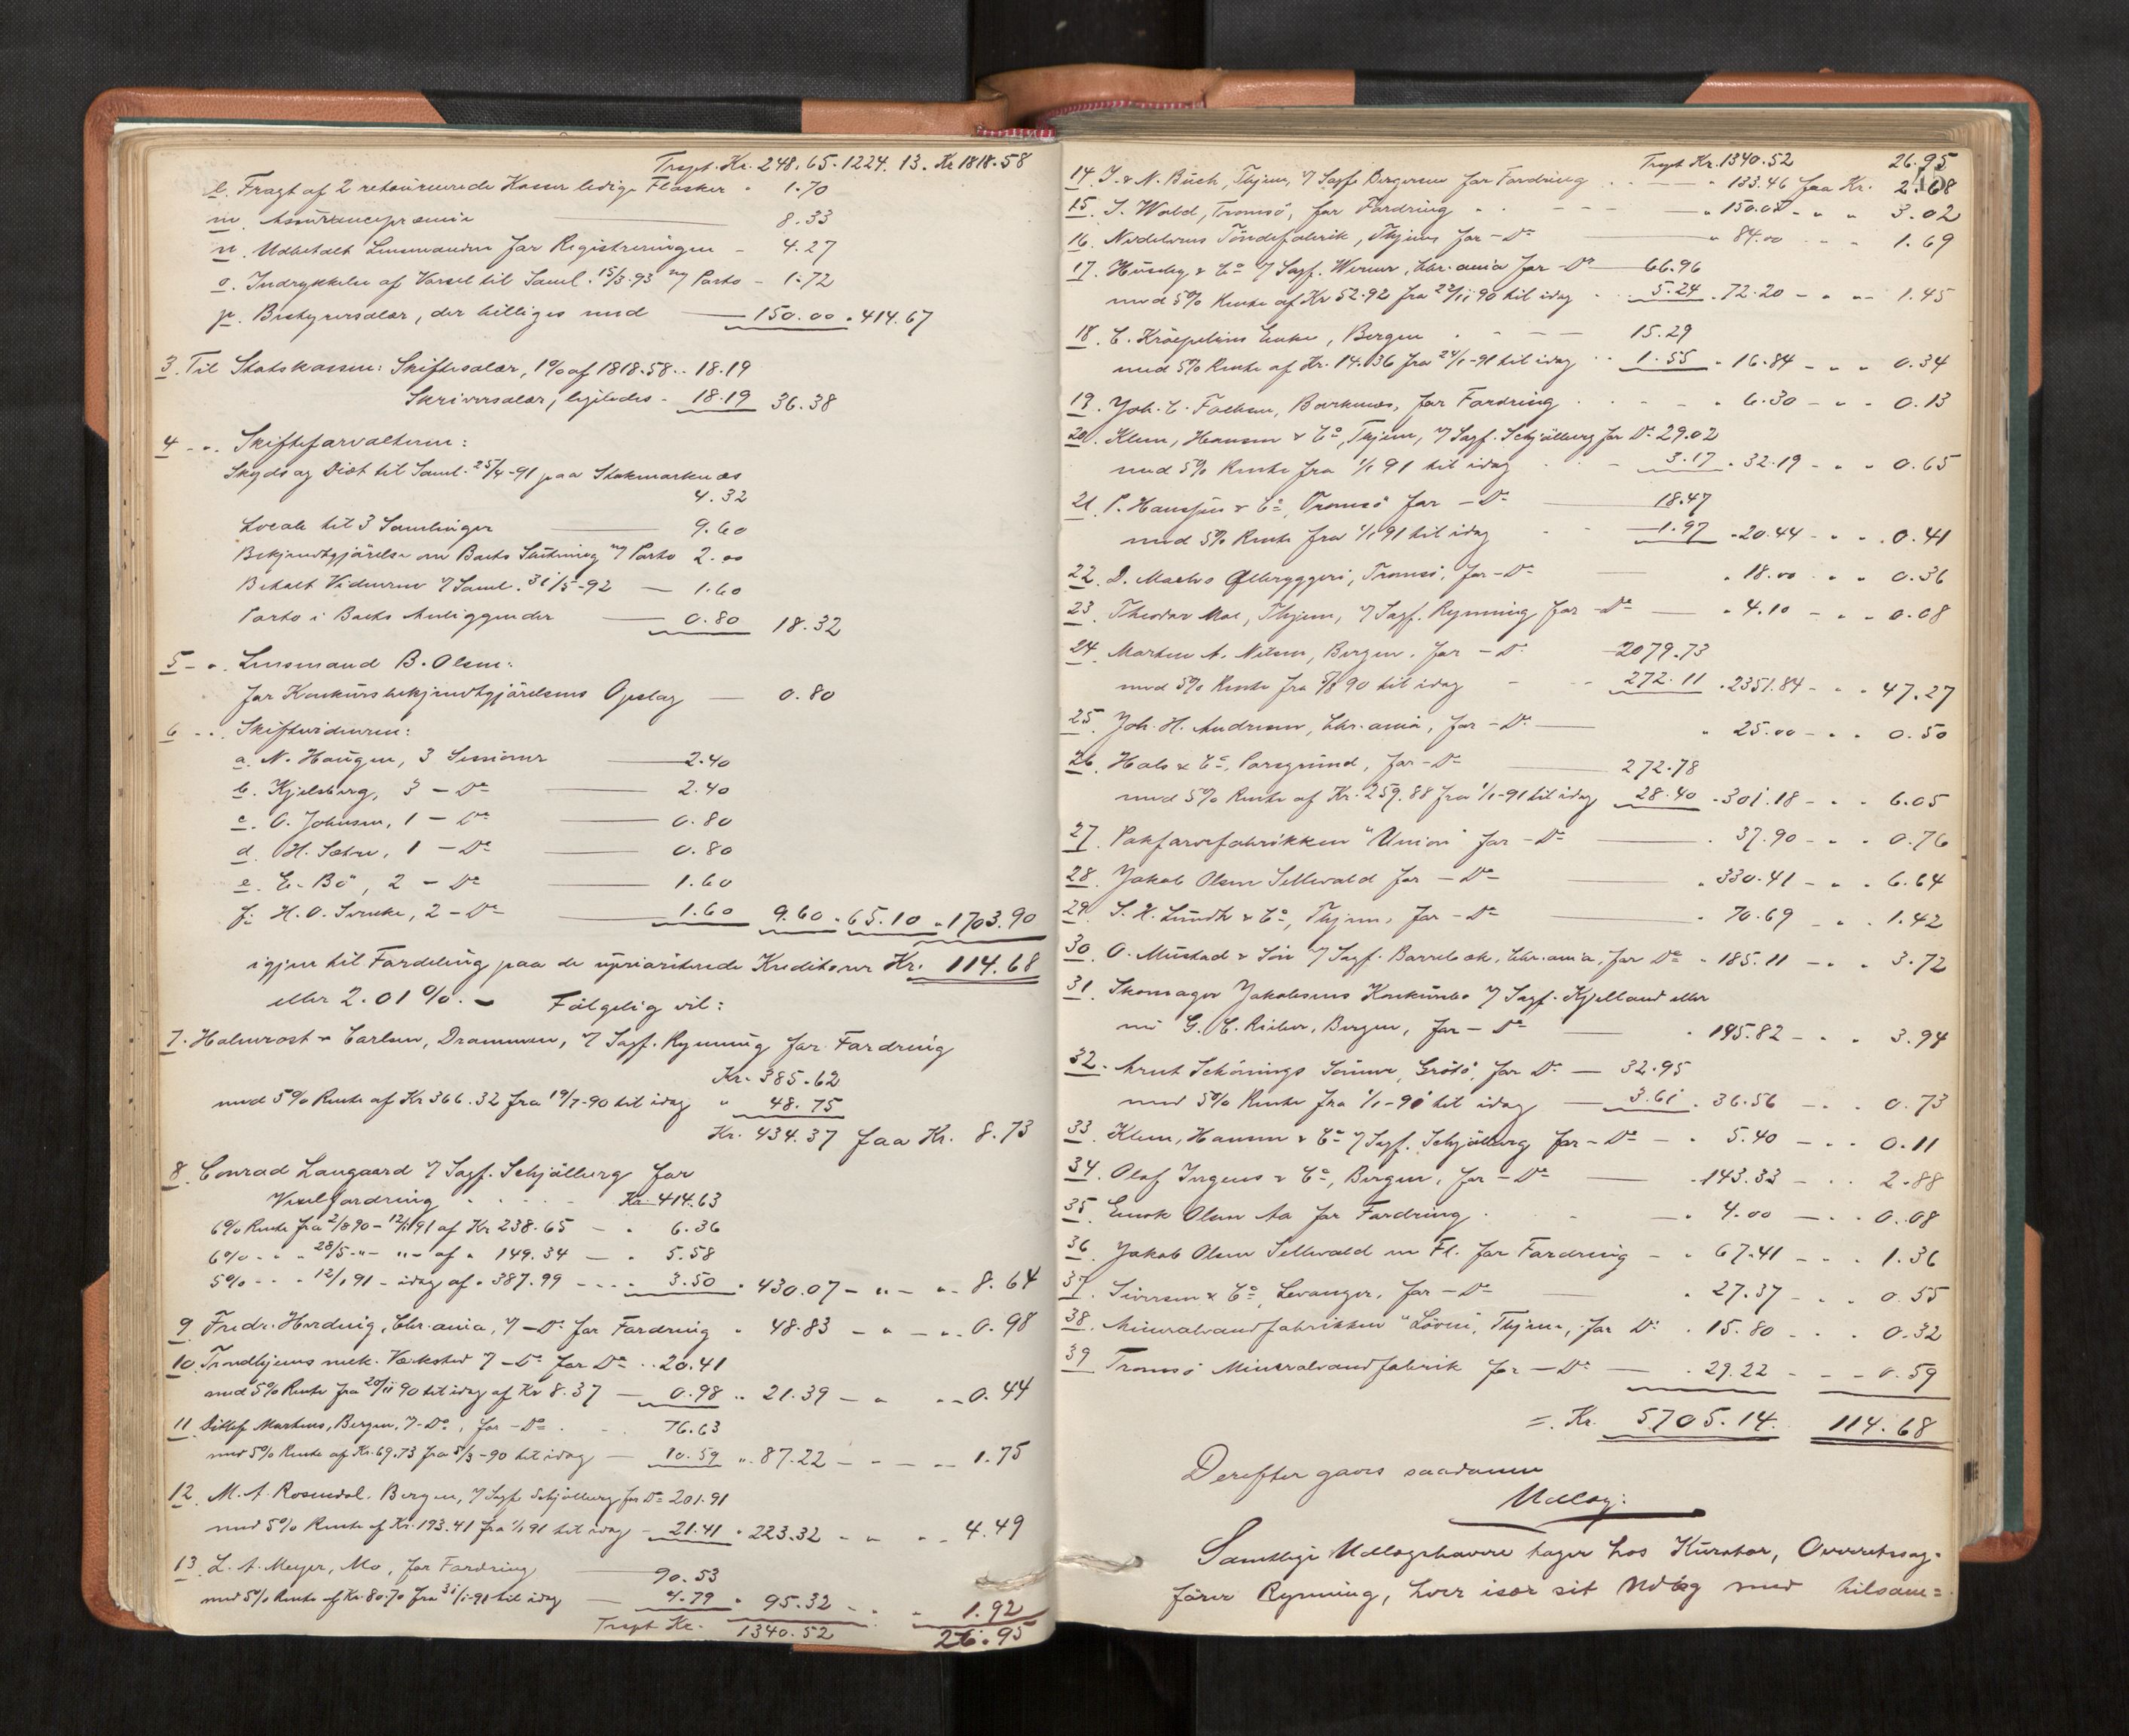 Trspt. Kr. 248.65. 1224.13. Kr 1818.58
l. Fragt af 2 retournerede Kasser ledige Flasker " 1.70
m. Assurancepræmie 8.33
n. Udbetalt Lensmanden for Registreringen - 4.27
o. Indrykkelse af Varsel til Saml. 15/3-93 m/ Porto - 1.72
p. Bestyrersalær, der billiges med 150.00 . 414.67
3. Til Statskassen: Skiftesalær, 1% af 1818.58 .. 18.19
Skriversalær, ligeledes - 18.19 36.38
4 - ". Skifteforvalteren:
Skyds og Diæt til Saml. 25/4-91 paa Stokmarknæs
4.32
Locale til 3 Samlinger 9.60
Bekjendtgjörelse om Boets Slutning m/ Porto 2.00
Betalt Vidnerne v/ Saml. 31/5-92 — 1.60
Porto i Boets Anliggender 0.80 18.32
5 - ". Lensmand B. Olsen:
for Konkursbekjendtgjörelsens Opslag — 0.80
6 - ". Skiftevidnerne:
a. N. Haugen, 3 Sessioner 2.40
b. Kjelsberg, 3 - Do 2.40
c. O. Johnsen, 1 - Do 0.80
d. H. Sætre, 1 - Do 0.80
e. E. Bö, 2 - Do 1.60
f. H. O. 2 - Do 1.60 9.60 . 65.10 . 1703.90
igjen til Fordeling paa de upriориterede Kreditorer Kr. 114.68
eller 2.01%. - Fölgelig vil:
7. Holmrost & Carlsen, Drammen, v/ Sagf. Rynning for Fordring
Kr. 385.62
med 5% Rente af Kr 366.32 fra 19/7-90 til idag " 48.75
Kr. 434.37 faa Kr. 8.73
8. Conrad Langaard v/ Sagf. Schjölberg for
Vexelfordring Kr. 414.63
6% Rente fra 2/8 90 - 12/1 91 af Kr 238.65 - " 6.36
6% - " - 28/5 - " - " - af " 149.34 — " 5.58
5% - " - 12/1 91 - idag af " 387.99 - - - 3.50 " 430.07 - " - " - 8.64
9. Fredr. Herdnig, Chr.ania, v/ - Do for Fordring " 48.83 - " - " - 0.98
10. Trondhjems mek. Værksted v/ - Do for Do " " 20.41
med 5% Rente fra 20/11 90 til idag af Kr 8.37 — 0.98 .. 21.39 - " " - 0.44
11. Ditlef Martens, Bergen, v/ - Do, for - Do 76.63
med 5% Rente af Kr. 69.73 fra 5/3-90 til idag — 10.59 " 87.22 - - - - 1.75
12. M. A. Rosendal, Bergen, v/ Sagf. Schjölberg for Do 201.91
med 5% Rente af Kr. 193.41 fra 1/1 91 til idag - 21.41 " 223.32 - " " - 4.49
13. L. A. Meyer, Mo, for Fordring 90.53
med 5% Rente af Kr. 80.70 fra 31/1-91 til idag — 4.79 " 95.32 - " " 1.92
Trspt Kr. 1340.52 26.95
Trspt Kr. 1340.52 26.95
14. J. & N. Buch, Thjem, v/ Sagf. Bergersen for Fordring " 133.46 faa Kr. 2.68
15. S. Wold, Tromsö, for Fordring " 150.08 - " " 3.02
16. Nidelvens Töndefabrik, Thjems for - Do " 84.00 - - - 1.69
17. Huseby & Co v/ Sagf. Werner, Chr.ania for - Do 66.96
med 5% Rente af Kr 52.92 fra 22/11 90 til idag 5.24 . 72.20 - " " - 1.45
18. C. Kröepeliens Enke, Bergen 15.29
med 5% Rente af Kr. 14.036 fra 24/1-91 til idag 1.55 " 16.84 - - " 0.34
19. Joh. C. Falksen, Borknæs, for Fordring " 6.30 - " - 0.13
20. Klem, Hansen & Co, Thjem, v/ Sagf. Schjölberg for Do 29.02
med 5% Rente fra 1/1 91 til idag 3.17 . 32.19 - - " 0.65
21. P. Hansjen & Co, Tromsö for - Do 18.47
med 5% Rente fra 1/1 91 til idag 1.97 " 20.44 - " - 0.41
22. D. Macks Ölbryggeri, Tromsö, for - Do " 18.00 " " " 0.36
23. Theodor Moe, Thjem, v/ Sagf. Rynning for - Do " 4.10 - - " 0.08
24. Morten A. Nilsen, Bergen, for - Do 2079.73
med 5% Rente fra 5/8 90 til idag 272.11 . 2351.84 - " " 47.27
25. Joh. H. Andresen, Chr.ania, for - Do " 25.00 - " " 0.50
26. Hals & Co, Porsgrund, for - Do 272.78
med 5% Rente af Kr. 259.88 fra 1/1-91 til idag 28.40 . 301.18 - " " 6.05
27. Pakfarvefabrikken "Union" for - Do . 37.90 - " " 0.76
28. Jakob Olsen Sellevold for - Do " 330.41 - " " 6.64
29. S. H. Lundh & Co, Thjem, for - Do " 70.69 - " " 1.42
30. O. Mustad & Sön v/ Sagf. Borrebæk, Chr.ania, for Do " 185.11 - " " 3.72
31. Skomager Jakobsens Konkursbo v/ Sagf. Kjelland eller
nu G. C. Rieber, Bergen, for - Do " 195.82 - " " 3.94
32. Arnt Schönings Sönner, Grötö, for Do — 32.95
med 5% Rente fra 1/1-91 til idag — 3.61 . 36.56 - " " 0.73
33. Klem, Hansen & Co v/ Sagf. Schjölberg for - Do - " 5.40 - - " 0.11
34. Olaf Irgens & Co, Bergen, for - Do . 143.33 - " " 2.88
35. Enok Olsen Aa for Fordring " 4.00 - - " 0.08
36. Jakob Olsen Sellevold m Fl. for Fordring - " 67.41 - - " 1.36
37. Siversen & Co, Levanger, for - Do " 27.37 - " " 0.55
38. Mineralvandfabrikken "Löven", Thjem, for Do " 15.80 - - " 0.32
39 Tromsö Mineralvandfabrik for - Do — " 29.22 - - - 0.59
= Kr. 5705.14. 114.68
Derefter gaves saadanne
Udlæg:
Samtlige Udlægshavere tager hos Kurator, Overretssag-
förer Rynning, hver især sit Udlæg med tilsam=